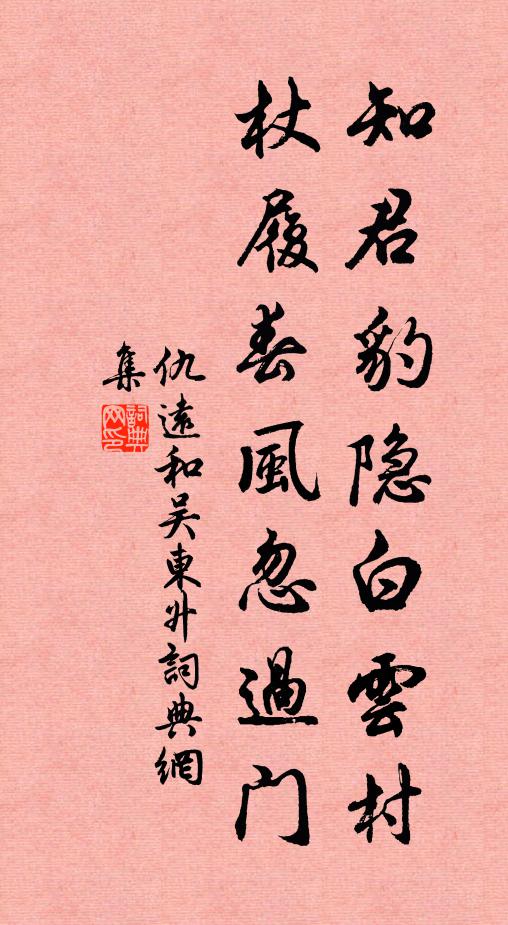 知君豹隐白雲村
杖履春風忽過门
仇遠和吴東升詞典網
集
詞典网印